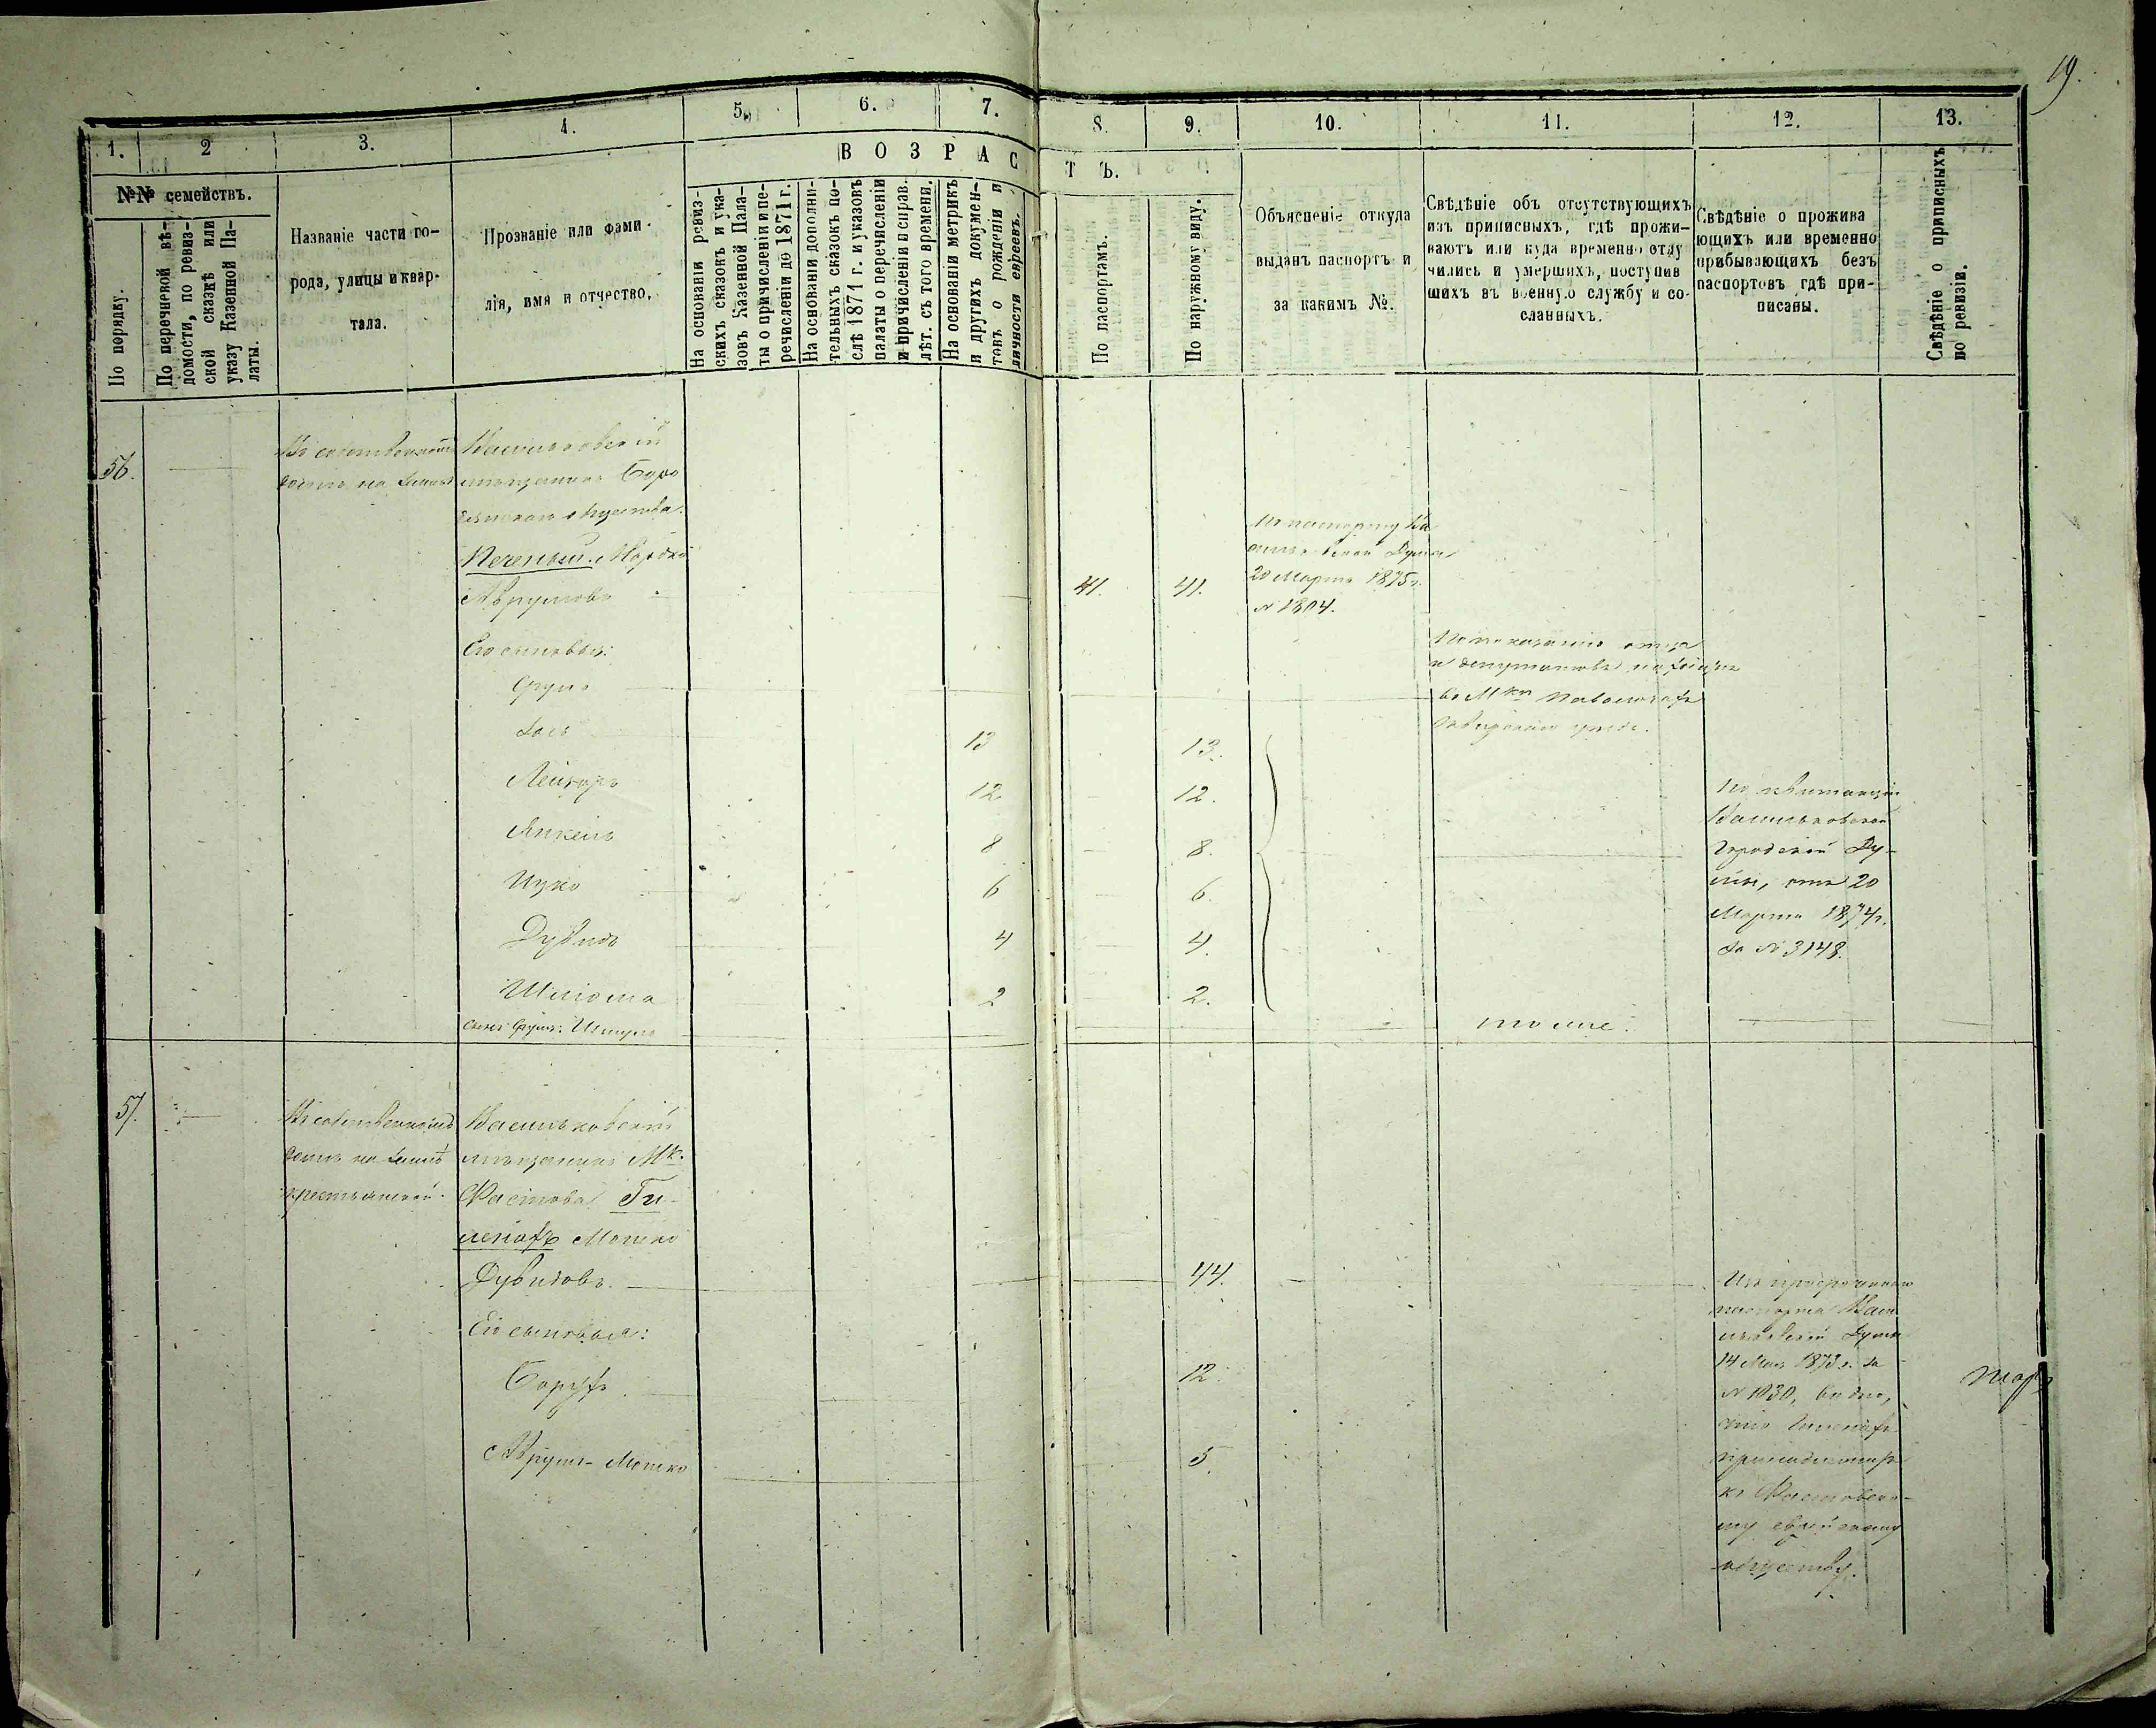 19.
1.
2
3.
4.
5.
6.
7.
8.
9.
10.
11.
12.
13.
ВОЗРАС
ТЪ.
№№ семействъ.
По порядку.
По перечневой вѣ-
домости, по ревиз-
ской сказкѣ или
указу Казенной Па-
латы.
Названіе части го-
рода, улицы и квар-
тала.
Прозваніе или фами-
лія, имя и отчество.
На основаніи ревиз-
скихъ сказокъ и ука-
зовъ Казенной Пала-
ты о причисленіи и пе-
речисленіи до 1871 г.
На основаніи дополни-
тельныхъ сказокъ по-
слѣ 1871 г. и указовъ
палаты о перечисленіи
и причисленіи и справ.
лѣт. съ того времени.
На основаніи метрикъ
и другихъ докумен-
товъ о рожденіи и
личности евреевъ.
По паспортамъ.
По наружному виду.
Объясненіе откуда
выданъ паспортъ и
за какимъ №.
Свѣдѣніе объ отсутствующихъ
изъ приписныхъ, гдѣ прожи-
ваютъ или куда временно отлу
чились и умершихъ, поступив
шихъ въ военную службу и со-
сланныхъ.
Свѣдѣніе о прожива
ющихъ или временно
прибывающихъ безъ
паспортовъ гдѣ при-
писаны.
Свѣдѣніе о приписныхъ
по ревизіи.
56.
Въ собственномъ
домѣ на землѣ
Васильковскій
мѣщанинъ
общества
Печеный Мордко
Аврумовъ
41.
41.
По паспорту Ва
сильковской Думы
20 Марта 1875 г.
№ 1804.
Его сыновья:
Сруль
По показанію отца
и депутатовъ находится
въ Мкѣ Паволочахъ
Сквирскаго уѣзда.
13
13.
Лейзоръ
12
12.
Янкель
8
8.
Ицко
6
6.
Дувидъ
4
4.
Шліома
2
2.
По квитанціи
Васильковской
Городской Ду-
мы, отъ 20
Марта 1874 г.
за № 3148.
сынъ Сруля:
тоже.
57.
Въ собственномъ
домѣ на землѣ
крестьянской.
Васильковскій
мѣщанинъ Мк.
Фастова Ги-
ленахъ Мошко
Дувидовъ.
44.
Его сыновья:
Борухъ
12.
Аврумъ-Мошко
5.
Изъ просроченнаго
паспорта Васи
льковской Думы
14 Мая 1873 г. за
№ 1030, видно,
что Гиленахъ
принадлежитъ
къ Фастовско-
му еврейскому
обществу.